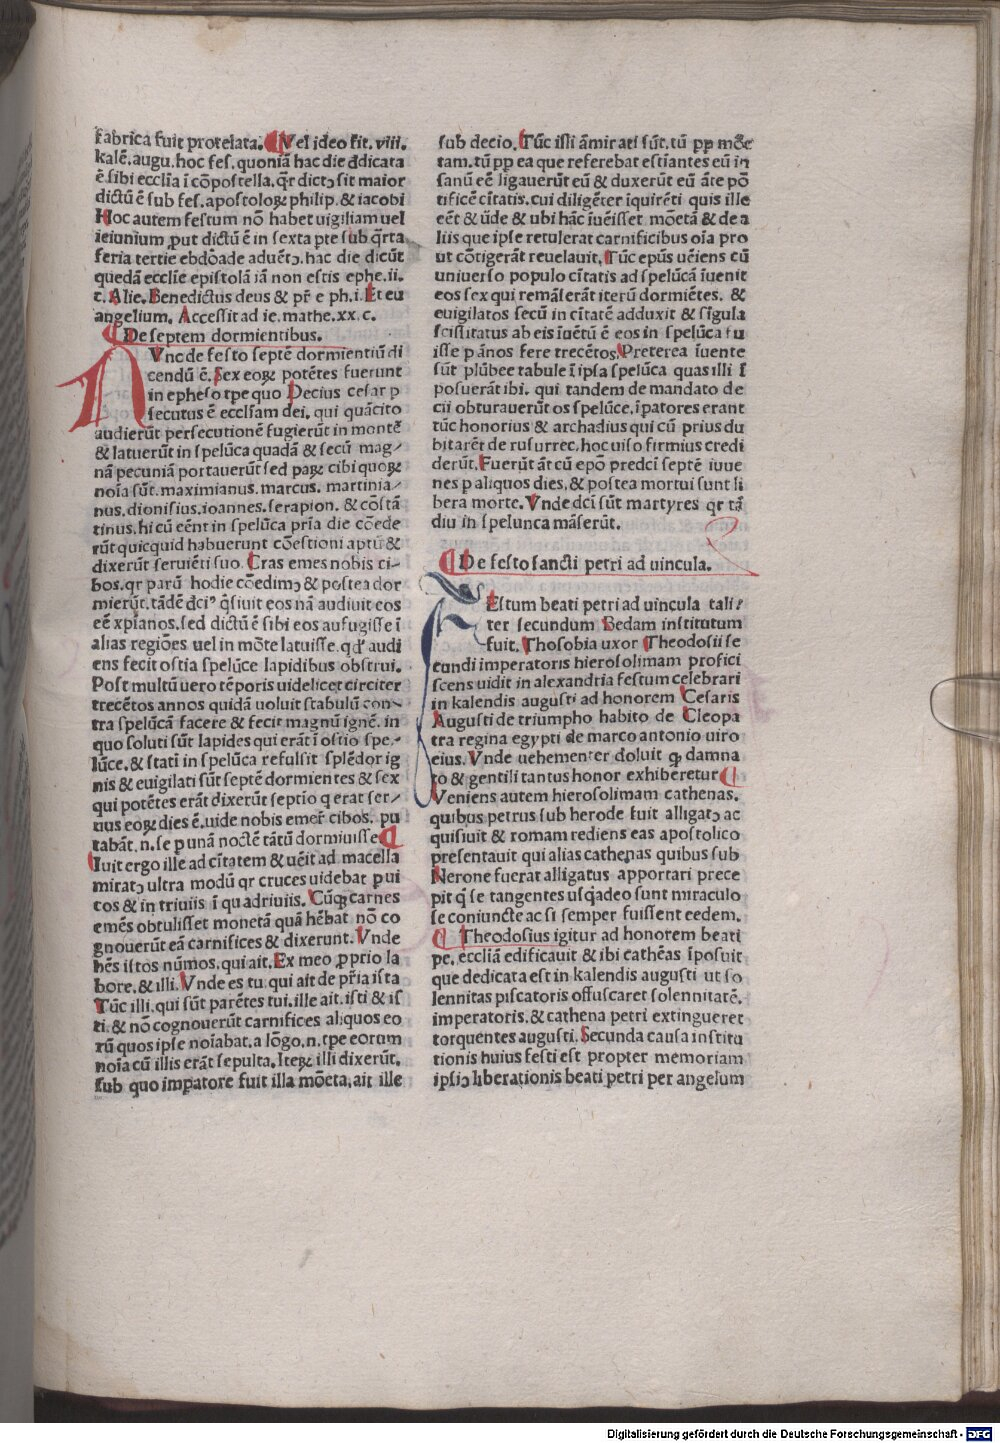 fabrica fuit protelata. Vel ideo fit. viii.
kalē. augu. hoc fes. quoniā hac die dedicata
ē. sibi ecclīa ī cōpostella. qr̄ dictꝯ sit maior
dictū ē sub fes. apostoloꝝ philip. & iacobi
Hoc autem festum nō habet uigiliam uel
ieiunium ꝓut dictū ē in sexta ꝑte sub q̄rta
feria tertie ebdōade aduētꝯ. hac die dicūt
quedā ecclīe epistolā iā non estis ephe. ii.
c. Alie. Benedictus deus & pr̄ e ph. i. Et eu
angelium. Accessit ad ie. mathe. xx. c.
De septem dormientibus.
Vnc de festo septē dormientiū di
cendū ē. Sex eoꝝ potētes fuerunt
in epheso tꝑe quo Decius cesar ꝑ
secutus ē eccl̄iam dei. qui quācito
audierūt persecutionē fugierūt in montē
& latuerūt in spelūca quadā & secū mag⸗
nā pecuniā portauerūt sed paꝝ cibi quoꝝ
noīa sūt. maximianus. marcus. martinia⸗
nus. dionisius. ioannes. serapion. & cōstā
tinus. hi cū eēnt in spelūca pr̄ia die cōede
rūt quicquid habuerunt cōestioni aptū &
dixerūt seruiēti suo. Cras emes nobis ci⸗
bos. qr parū hodie cōedimꝯ & postea dor
mierūt. tādē dc̄i⁹ q̄siuit eos nā audiuit eos
eē xp̄ianos. sed dictū ē sibi eos aufugisse ī
alias regiōes uel in mōte latuisse. qd̓ audi
ens fecit ostia spelūce lapidibus obstrui.
Post multū uero tēporis uidelicet circiter
trecētos annos quidā uoluit stabulū con⸗
tra spelūcā facere & fecit magnū ignē. in
quo soluti sūt lapides qui erāt ī ostio spe⸗
lūce. & stati in spelūca refulsit splēdor ig
nis & euigilati sūt septē dormientes & sex
qui potētes erāt dixerūt septīo q erat ser⸗
uus eoꝝ dies ē. uide nobis emer̄ cibos. pu
tabāt. n. se ꝑ unā noctē tātū dormiuisse
Iuit ergo ille ad cītatem & uēit ad macella
miratꝯ ultra modū qr cruces uidebat ꝑ ui
cos & in triuiis ī quadriuiis. Cūqꝫ carnes
emēs obtulisset monetā quā hēbat nō co
gnouerūt eā carnifices & dixerunt. Vnde
hēs istos nūmos. qui ait. Ex meo ꝓprio la
bore. & illi. Vnde es tu. qui ait de pr̄ia ista
Tūc illi. qui sūt parētes tui. ille ait. isti & is
ti. & nō cognouerūt carnifices aliquos eo
rū quos ipse noīabat. a lōgo. n. tꝑe eorum
noīa cū illis erāt sepulta. Iteꝝ illi dixerūt.
sub quo impatore fuit illa mōeta. ait ille
sub decio. Tūc isti āmirati sūt. tū ꝓꝑ mōe
tam. tū ꝓꝑ ea que referebat estiantes eū in
sanū eē ligauerūt eū & duxerūt eū āte pō
tificē cītatis. cui diligēter īquirēti quis ille
eēt & ūde & ubi hāc iuēisset mōetā & de a
liis que ipse retulerat carnificibus oīa pro
ut cōtigerāt reuelauit. Tūc epūs uēiens cū
uniuerso populo cītatis ad spelūcā īuenit
eos sex qui remāserāt iterū dormiētes. &
euigilatos secū in cītatē adduxit & sīgula
scissitatus ab eis īuētū ē eos in spelūca fu
isse ꝑ ānos fere trecētos. Preterea īuente
sūt plūbee tabule ī ipsa spelūca quas illi ī
posuerāt ibi. qui tandem de mandato de
cii obturauerūt os spelūce. īpatores erant
tūc honorius & archadius qui cū prius du
bitarēt de rusurrec. hoc uiso firmius credi
derūt. Fuerūt āt cū epō predc̄i septē iuue
nes ꝑ aliquos dies. & postea mortui sunt li
bera morte. Vnde dc̄i sūt martyres qr tā
diu in spelunca māserūt.
De festo sancti petri ad uincula.
Estum beati petri ad uincula tali⸗
ter secundum Bedam institutum
fuit. Thosobia uxor Theodosii se
cundi imperatoris hierosolimam profici
scens uidit in alexandria festum celebrari
in kalendis augusti ad honorem Cesaris
Augusti de triumpho habito de Cleopa
tra regina egypti de marco antonio uiro
eius. Vnde uehementer doluit ꝙ damna
to & gentili tantus honor exhiberetur
Veniens autem hierosolimam cathenas.
quibus petrus sub herode fuit alligatꝯ ac
quisiuit & romam rediens eas apostolico
presentauit qui alias cathenas quibus sub
Nerone fuerat alligatus apportari prece
pit q̄ se tangentes usq̄adeo sunt miraculo
se coniuncte ac si semper fuissent eedem.
Theodosius igitur ad honorem beati
pe. eccliā edificauit & ibi cathēas īposuit
que dedicata est in kalendis augusti ut so
lennitas piscatoris offuscaret solennitatē.
imperatoris. & cathena petri extingueret
torquentes augusti. Secunda causa institu
tionis huius festi est propter memoriam
ipsiꝯ liberationis beati petri per angelum
Digitalisierung gefördert durch die Deutsche Forschungsgemeinschaft - DFG